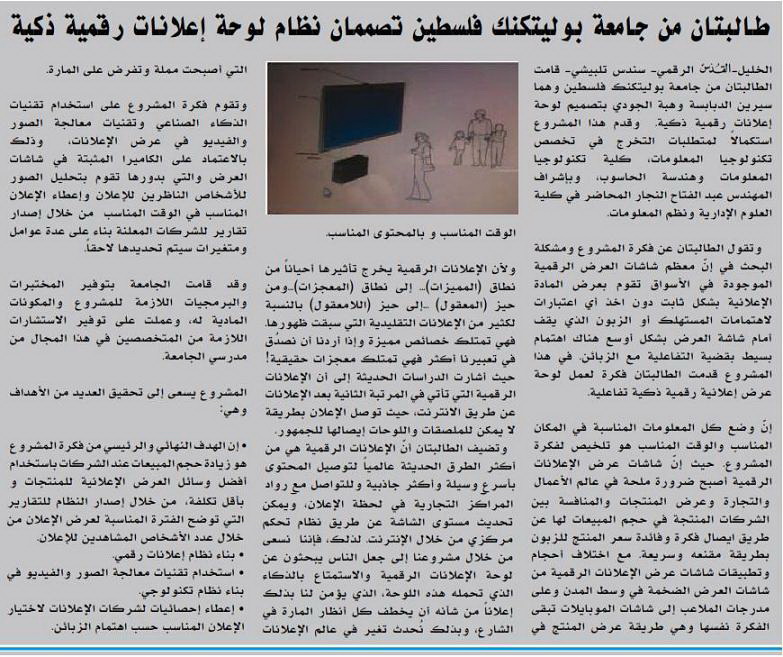 طالبتان من جامعة بوليتكنك فلسطين تصممان نظام لوحة إعلانات رقمية ذكية
الخليل-القدس الرقمي- سندس تلبيشي- قامت
الطالبتان من جامعة بوليتكنك فلسطين وهما
سيرين الدبابسة وهبة الجودي بتصميم لوحة
إعلانات رقمية ذكية. وقدم هذا المشروع
استكمالاً لمتطلبات التخرج في تخصص
تكنولوجيا المعلومات، كلية تكنولوجيا
المعلومات وهندسة الحاسوب، وبإشراف
المهندس عبد الفتاح النجار المحاضر في كلية
العلوم الإدارية ونظم المعلومات.
وتقول الطالبتان عن فكرة المشروع ومشكلة
البحث في إنّ معظم شاشات العرض الرقمية
الموجودة في الأسواق تقوم بعرض المادة
الإعلانية بشكل ثابت دون اخذ أي اعتبارات
لاهتمامات المستهلك أو الزبون الذي يقف
أمام شاشة العرض بشكل أوسع هناك اهتمام
بسيط بقضية التفاعلية مع الزبائن. في هذا
المشروع قدمت الطالبتان فكرة لعمل لوحة
عرض إعلانية رقمية ذكية تفاعلية.
إنّ وضع كل المعلومات المناسبة في المكان
المناسب والوقت المناسب هو تلخيص لفكرة
المشروع. حيث إنّ شاشات عرض الإعلانات
الرقمية أصبح ضرورة ملحة في عالم الأعمال
والتجارة وعرض المنتجات والمنافسة بين
الشركات المنتجة في حجم المبيعات لها عن
طريق ايصال فكرة وفائدة سعر المنتج للزبون
بطريقة مقنعه وسريعة. مع اختلاف أحجام
وتطبيقات شاشات عرض الإعلانات الرقمية من
شاشات العرض الضخمة في وسط المدن وعلى
مدرجات الملاعب إلى شاشات الموبايلات تبقى
الفكرة نفسها وهي طريقة عرض المنتج في
الوقت المناسب و بالمحتوى المناسب.
ولأن الإعلانات الرقمية يخرج تأثيرها أحياناً من
نطاق (المميزات)... إلى نطاق (المعجزات)...ومن
حيز (المعقول) ...إلى حيز (اللامعقول) بالنسبة
لكثير من الإعلانات التقليدية التي سبقت ظهورها.
فهي تمتلك خصائص مميزة وإذا أردنا أن نصدُق
في تعبيرنا أكثر فهي تمتلك معجزات حقيقية!
حيث أشارت الدراسات الحديثة إلى أن الإعلانات
الرقمية التي تأتي في المرتبة الثانية بعد الإعلانات
عن طريق الانترنت، حيث توصل الإعلان بطريقة
لا يمكن للملصقات واللوحات إيصالها للجمهور.
وتضيف الطالبتان أنّ الإعلانات الرقمية هي من
أكثر الطرق الحديثة عالمياً لتوصيل المحتوى
بأسرع وسيلة وأكثر جاذبية وللتواصل مع رواد
المراكز التجارية في لحظة الإعلان، ويمكن
تحديث مستوى الشاشة عن طريق نظام تحكم
مركزي من خلال الإنترنت. لذلك، فإننا نسعى
من خلال مشروعنا إلى جعل الناس يبحثون عن
لوحة الإعلانات الرقمية والاستمتاع بالذكاء
الذي تحمله هذه اللوحة، الذي يؤمن لنا بذلك
إعلاناً من شأنه أن يخطف كل أنظار المارة في
الشارع، وبذلك نُحدث تغير في عالم الإعلانات
التي أصبحت مملة وتفرض على المارة.
وتقوم فكرة المشروع على استخدام تقنيات
الذكاء الصناعي وتقنيات معالجة الصور
والفيديو في عرض الإعلانات، وذلك
بالاعتماد على الكاميرا المثبتة في شاشات
العرض والتي بدورها تقوم بتحليل الصور
للأشخاص الناظرين للإعلان وإعطاء الإعلان
المناسب في الوقت المناسب من خلال إصدار
تقارير للشركات المعلنة بناء على عدة عوامل
ومتغيرات سيتم تحديدها لاحقاً.
وقد قامت الجامعة بتوفير المختبرات
والبرمجيات اللازمة للمشروع والمكونات
المادية له، وعملت على توفير الاستشارات
اللازمة من المتخصصين في هذا المجال من
مدرسي الجامعة.
المشروع يسعى إلى تحقيق العديد من الأهداف
وهي:
• إن الهدف النهائي والرئيسي من فكرة المشروع
هو زيادة حجم المبيعات عند الشركات باستخدام
أفضل وسائل العرض الإعلانية للمنتجات و
بأقل تكلفة، من خلال إصدار النظام للتقارير
التي توضح الفترة المناسبة لعرض الإعلان من
خلال عدد الأشخاص المشاهدين للإعلان.
• بناء نظام إعلانات رقمي.
• استخدام تقنيات معالجة الصور والفيديو في
بناء نظام تكنولوجي.
• إعطاء إحصائيات لشركات الإعلانات لاختيار
الإعلان المناسب حسب اهتمام الزبائن.